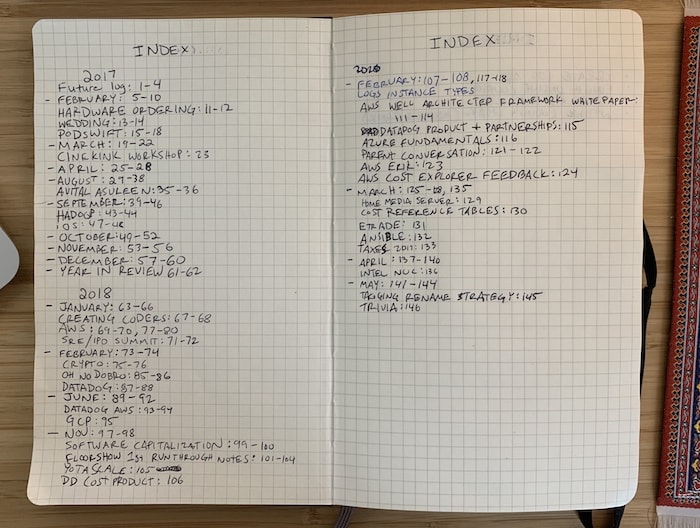 INDEX
2017
Future log: 1-4
- FEBRUARY: 5-10
HARDWARE ORDERING: 11-12
WEDDING: 13-14
PODSWIFT: 15-18
- MARCH: 19-22
CINEKINK WORKSHOP: 23
- APRIL: 25-28
- AUGUST: 29-38
AVITAL ASULEEN: 35-36
- SEPTEMBER: 39-46
HADOOP: 43-44
iOS: 47-48
- OCTOBER: 49-52
- NOVEMBER: 53-56
- DECEMBER: 57-60
- YEAR IN REVIEW 61-62
2018
- JANUARY: 63-66
CREATING CODERS: 67-68
AWS: 69-70, 77-80
SRE/IPO SUMMIT: 71-72
- FEBRUARY: 73-74
CRYPTO: 75-76
OH NO DOBRO: 85-86
DATADOG: 87-88
- JUNE: 89-92
DATADOG AWS: 93-94
GCP: 95
- NOV: 97-98
SOFTWARE CAPITALIZATION: 99-100
FLOORSHOW 1ST RUNTHROUGH NOTES: 101-104
YOTASCALE: 105
DD COST PRODUCT: 106
INDEX
2020
- FEBRUARY: 107-108, 117-118
LOGS INSTANCE TYPES
AWS WELL ARCHITECTED FRAMEWORK WHITEPAPER:
111-114
DATADOG PRODUCT + PARTNERSHIPS: 115
AZURE FUNDAMENTALS: 116
PARENT CONVERSATION: 121-122
AWS ERIK: 123
AWS COST EXPLORER FEEDBACK: 124
- MARCH: 125-128, 135
HOME MEDIA SERVER: 129
COST REFERENCE TABLES: 130
ETRADE: 131
ANSIBLE: 132
TAXES 2019: 133
- APRIL: 137-140
INTEL NUC: 136
- MAY: 141-144
TAGGING RENAME STRATEGY: 145
TRIVIA: 146